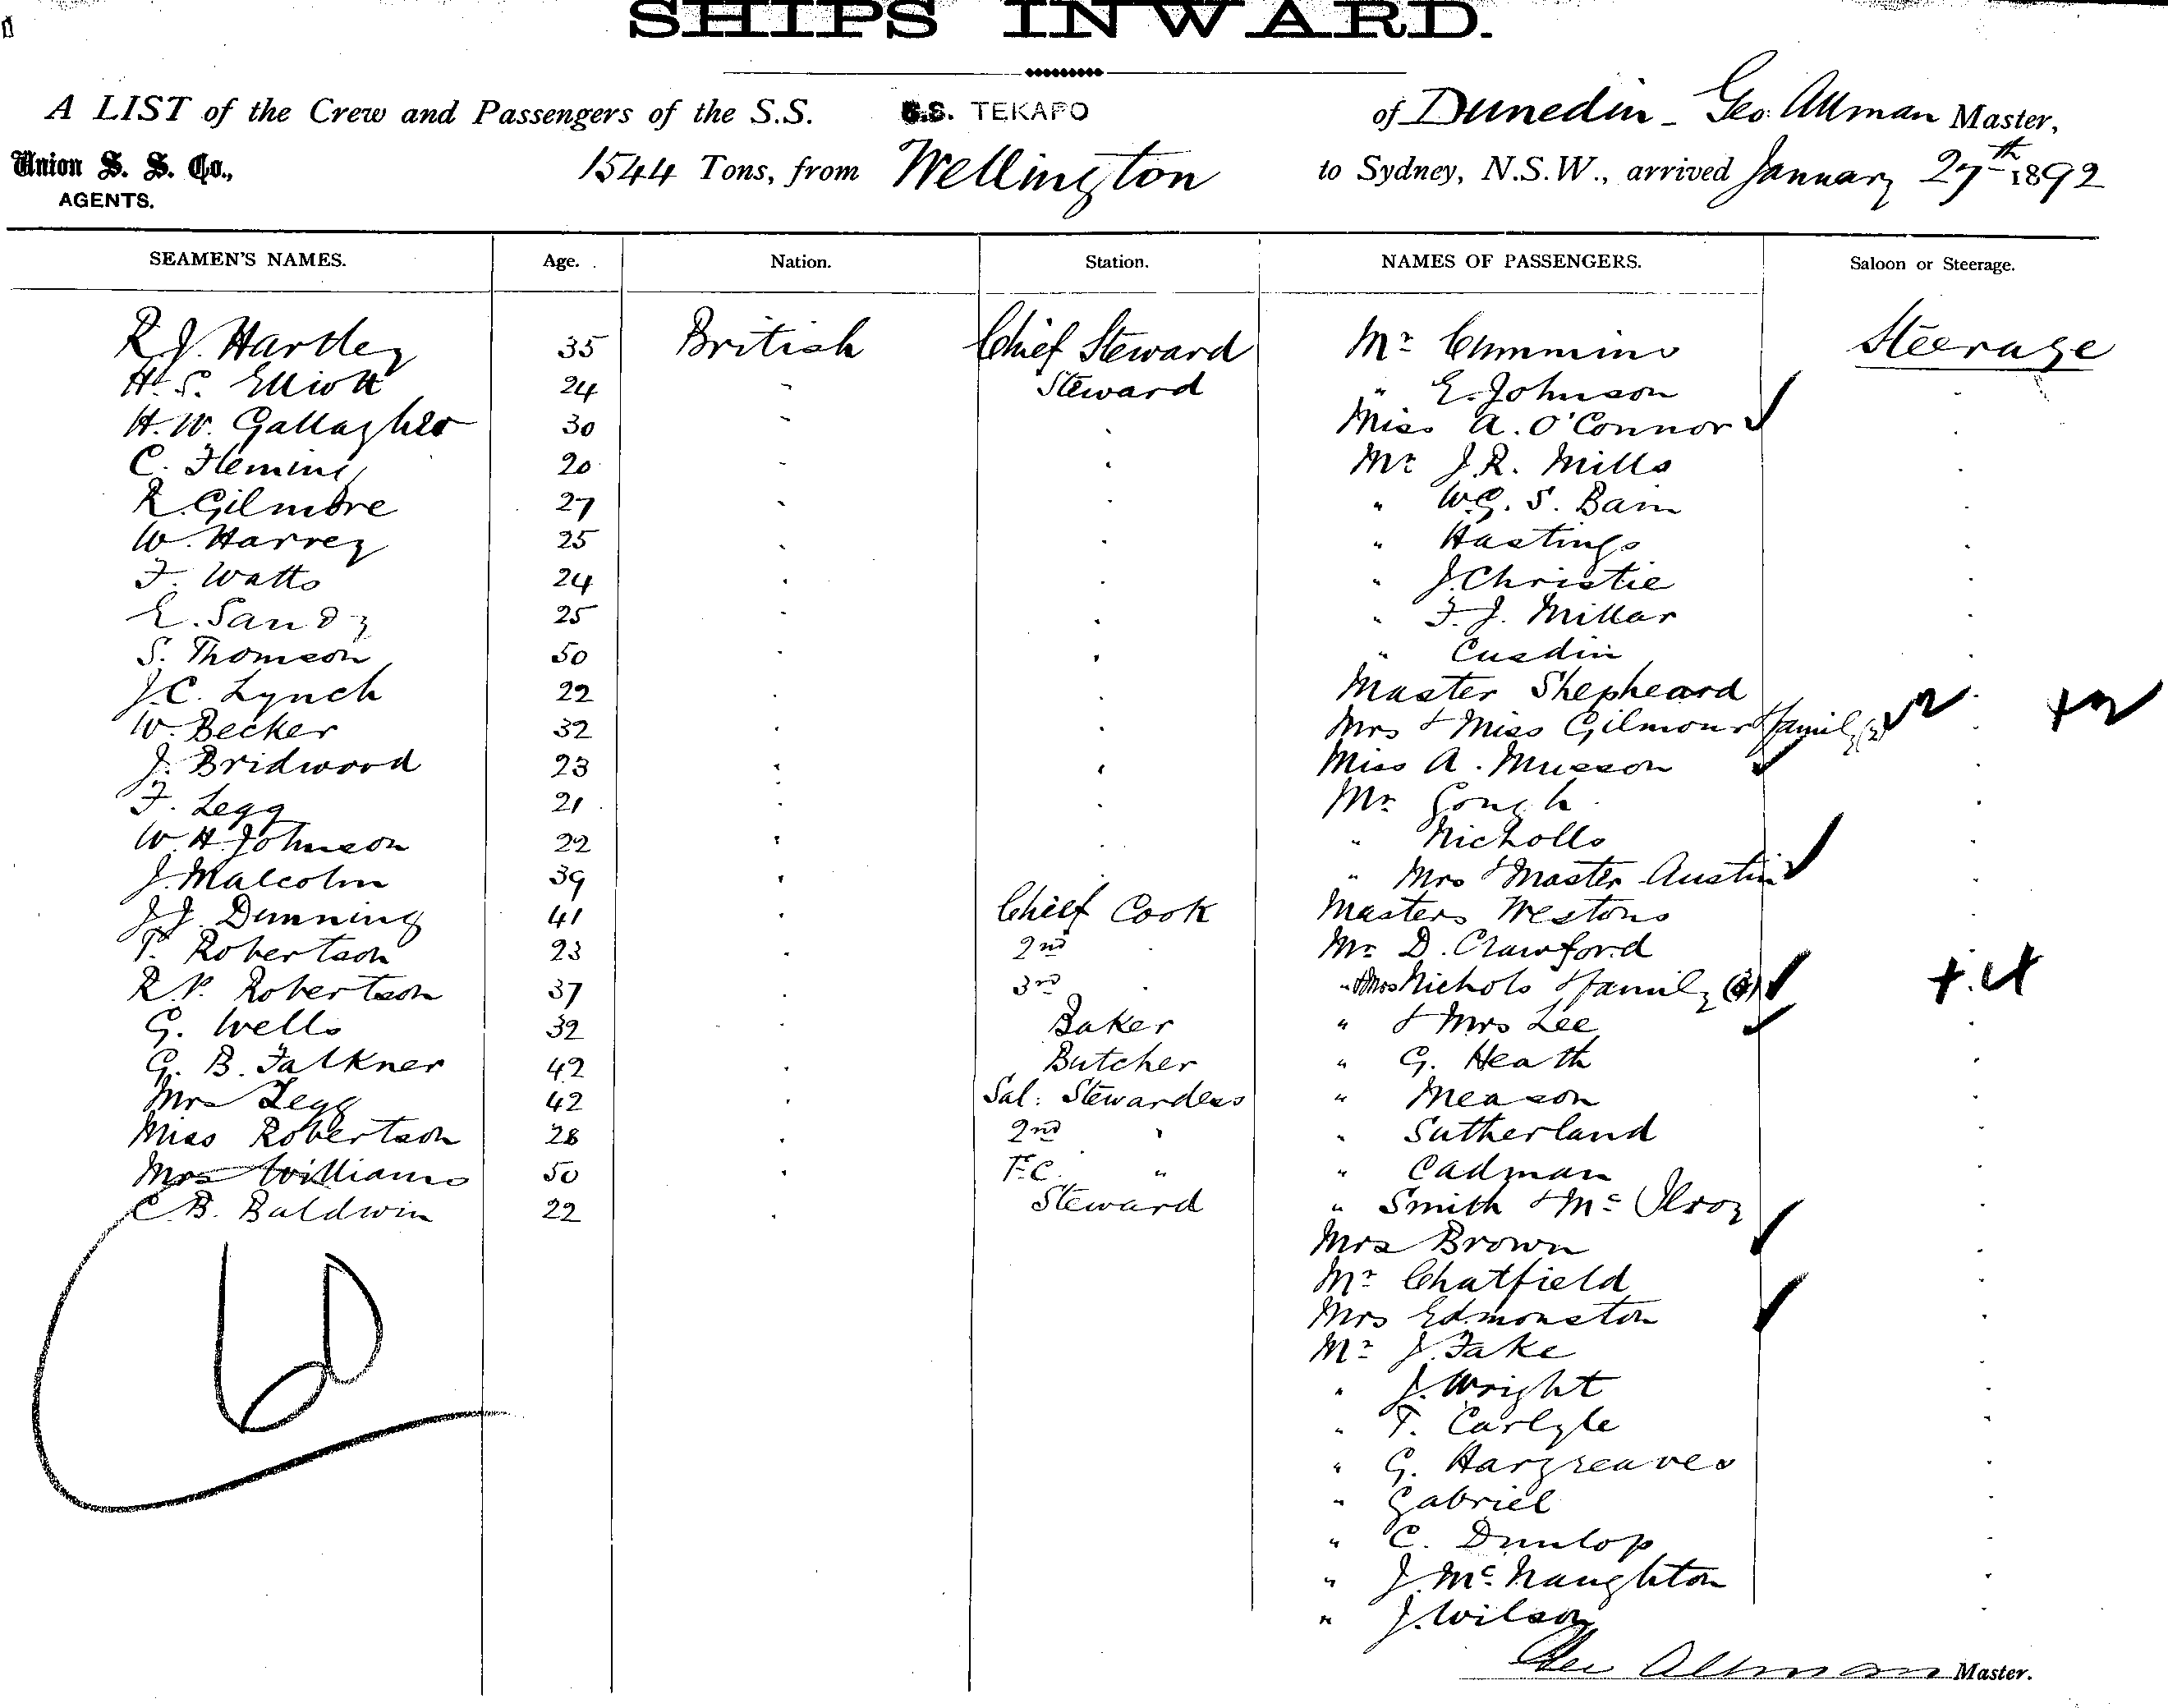 SHIPS INWARD.
A LIST of the Crew and Passengers of the S.S. S.S. TEKAPO of Dunedin - Geo. Allman Master,
Union S. S. Co., AGENTS. 1544 Tons, from Wellington to Sydney, N.S.W., arrived January 27th 1892
SEAMEN'S NAMES. Age. Nation. Station. NAMES OF PASSENGERS. Saloon or Steerage.
R. J. Hartley 35 British Chief Steward Mr Cummins Steerage
H. S. Elliott 24 " Steward " E. Johnson
H. W. Gallagher 30 " " Miss A. O'Connor ✓
C. Fleming 20 " " Mr J. R. Mills
R. Gilmore 27 " " " W. G. S. Bain
W. Harvey 25 " " " Hastings
F. Watts 24 " " " J. Christie
E. Sandy 25 " " " F. J. Millar
S. Thomson 50 " " " Cusdin
J. C. Lynch 22 " " Master Shepheard
W. Becker 32 " " Mrs & Miss Gilmour & family (2) ✓ 2 + 2
J. Bridwood 23 " " Miss A. Musson ✓
F. Legg 21 " " Mr Gough
W. H. Johnson 22 " " " Nicholls
J. Malcolm 39 " " Mrs & Master Austin ✓
J. J. Dunning 41 " Chief Cook Masters Westons
T. Robertson 23 " 2nd " Mr D. Crawford
R. P. Robertson 37 " 3rd " " & Mrs Nichols & family (4) ✓ + 4
G. Wells 32 " Baker " & Mrs Lee ✓
G. B. Falkner 42 " Butcher " G. Heath
Mrs Legg 42 " Sal: Stewardess " Meason
Miss Robertson 28 " 2nd " " Sutherland
Mrs Williams 50 " F.C. " " Cadman
C. B. Baldwin 22 " Steward " Smith & McIlroy
Mrs Brown ✓
Mr Chatfield
Mrs Edmonston ✓
Mr J. Fake
" J. Wright
" T. Carlyle
" G. Hargreaves
" Gabriel
" C. Dunlop
" J. McNaughton
" J. Wilson
60
Geo Allman Master.